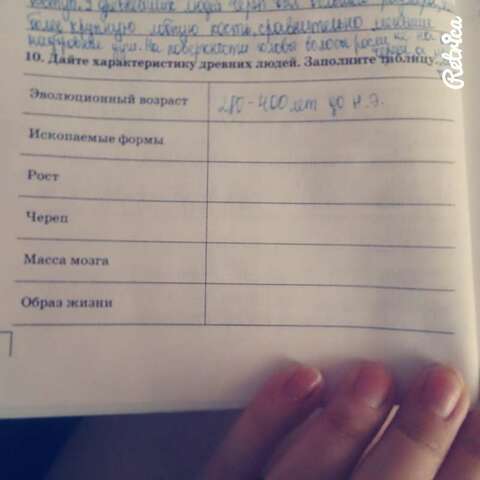 более крупную лобную кости, сравнительно меньшие
На поверхности головы волосы росли не на
10. Дайте характеристику древних людей. Заполните таблицу.
Эволюционный возраст
280-400 лет до н.э.
Ископаемые формы
Рост
Череп
Масса мозга
Образ жизни
Retrica